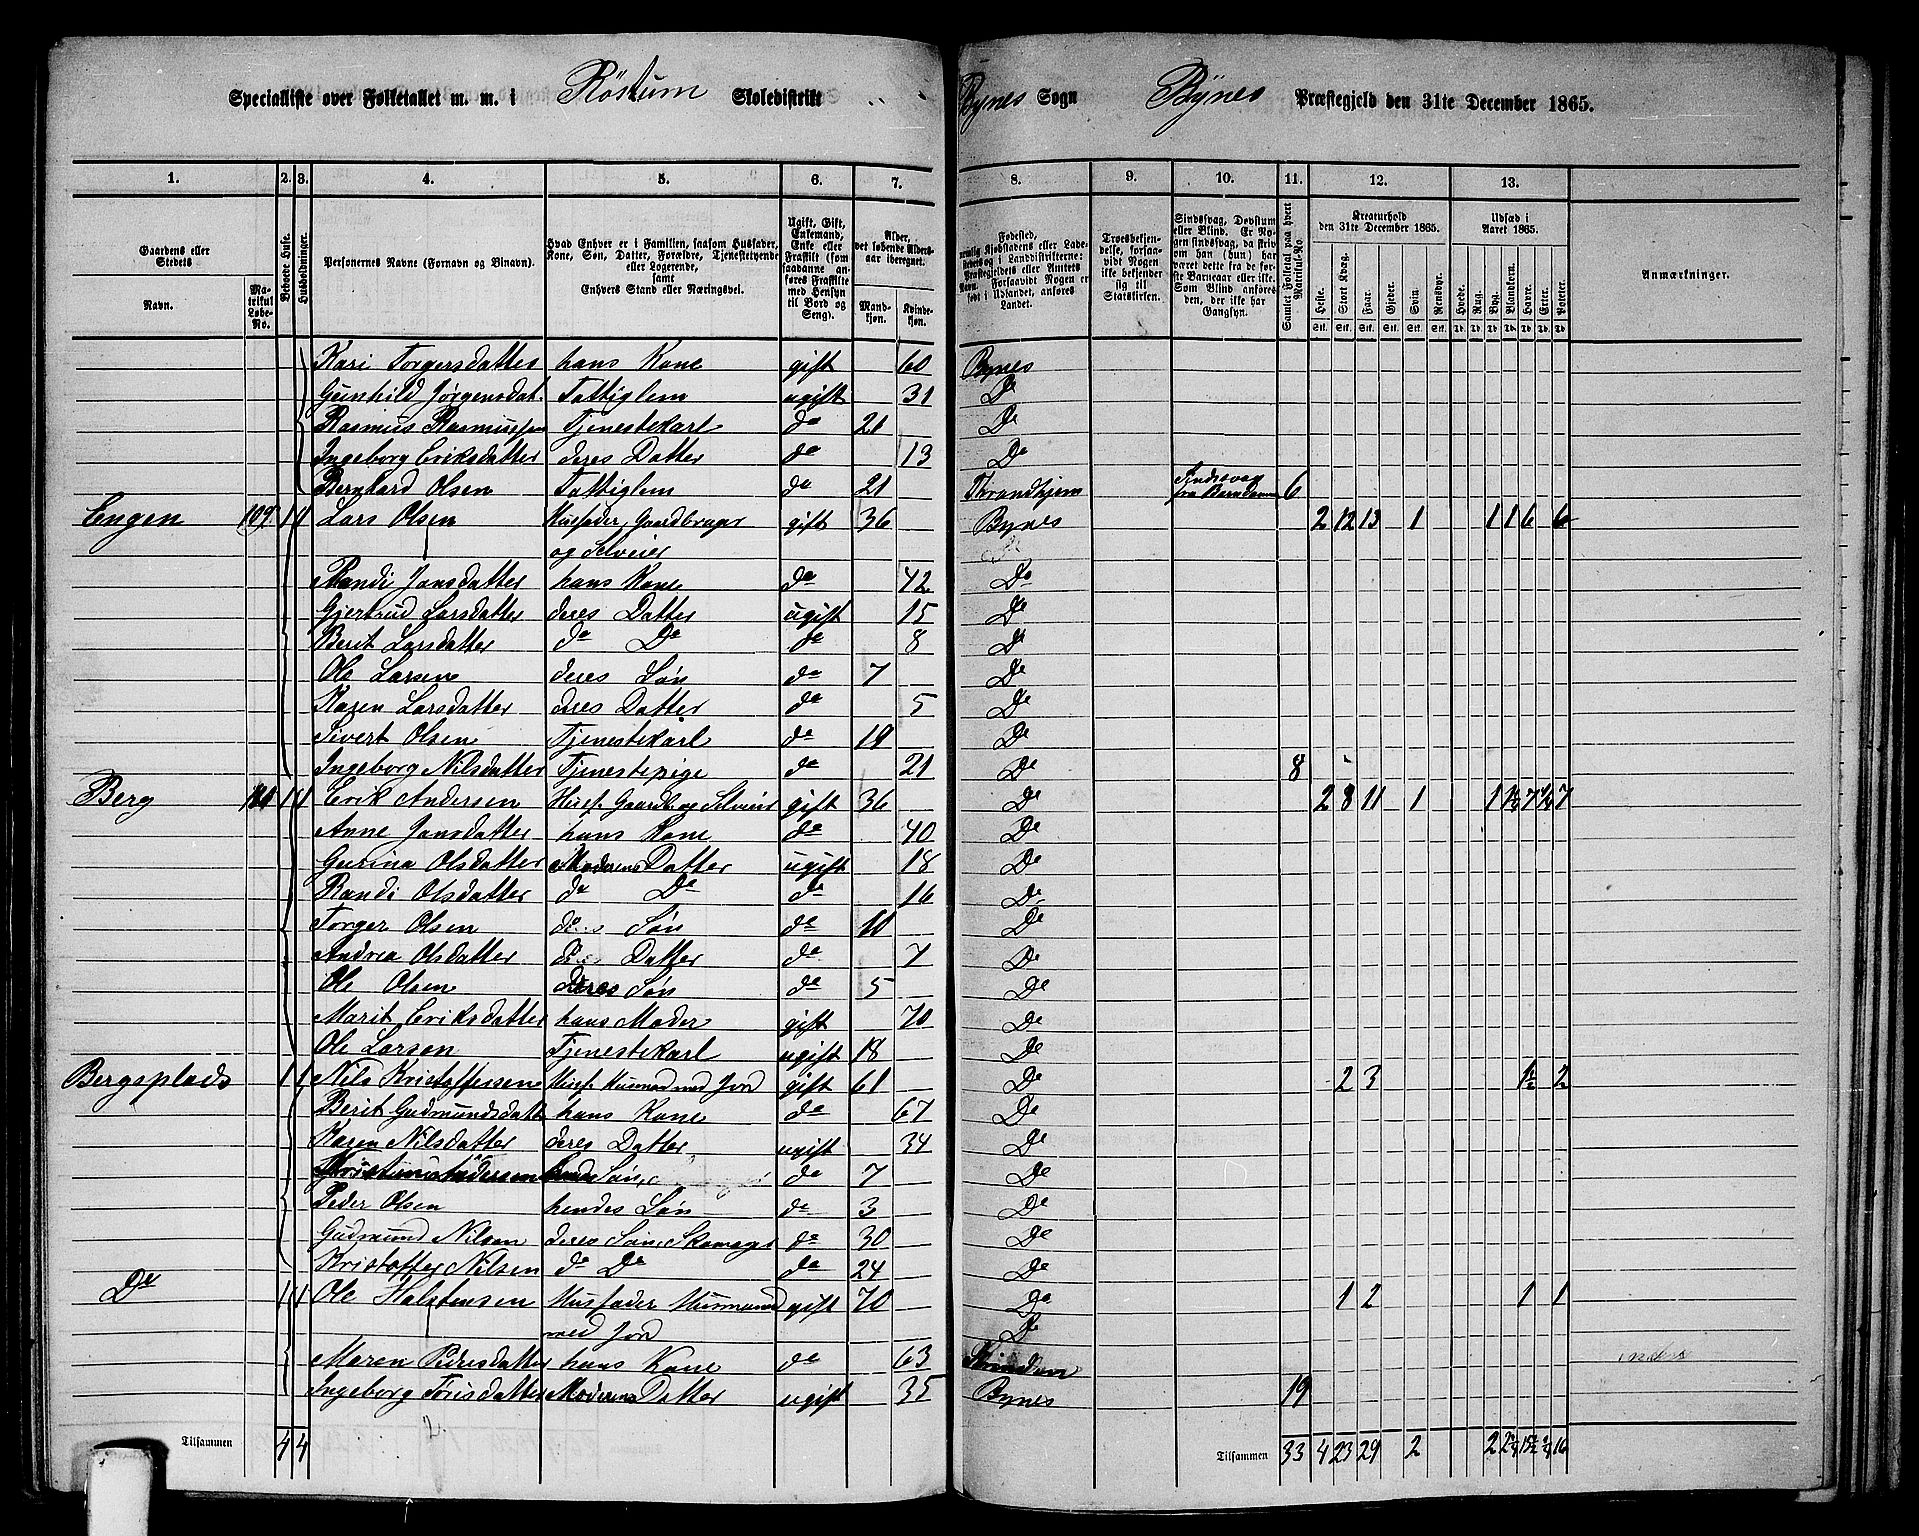 Specialliste over Folketallet m. m. i Röstum Skoledistrikt Bynes Sogn Bynes Præstegjeld den 31te December 1865.
1. 2. 3. 4. 5. 6. 7. 8. 9. 10. 11. 12. 13.
Gaardens eller Stedets
Navn.
Matrikul Løbe-No.
Beboede Huse.
Husholdninger.
Personernes Navne (Fornavn og Binavn).
Hvad Enhver er i Familien, saasom Husfader, Kone, Søn, Datter, Forældre, Tjenestetyende eller Logerende, samt Enhvers Stand eller Næringsvei.
Ugift, Gift, Enkemand, Enke eller Fraskilt (som saadanne anføres Fraskilte med Hensyn til Bord og Seng).
Alder, det løbende Alders-aar iberegnet.
Mand-kjøn. Kvinde-kjøn.
Troesbekjendelse, forsaavidt Nogen ikke bekjender sig til Statskirken.
Samlet Folketal paa hvert Matrikul-No.
Kreaturhold den 31te December 1865.
Udsæd i Aaret 1865.
Anmærkninger.
Heste. Stort Kvæg. Faar. Gjeder. Svin. Rensdyr. Hvede. Rug. Byg. Blandkorn. Havre. Erter. Poteter.
Kari Torgersdatter hans Kone gift 60 Bynes
Gunhild Jørgensdat. Fattiglem ugift 31 Do
Rasmus Rasmussen Tjenestekarl do 21 Do
Ingeborg Eriksdatter deres Datter do 13 Do
Bernhard Olsen Fattiglem do 21 Throndhjem Sindssvag fra Barndommen 6
Engen 109 1 1 Lars Olsen Husfader, Gaardbruger gift 36 Bynes 2 12 13 1 1 1 6 6
og Selveier
Randi Jonsdatter hans Kone do 42 Do
Gjertrud Larsdatter deres Datter ugift 15 Do
Berit Larsdatter do Do do 8 Do
Ole Larsen deres Søn do 7 Do
Karen Larsdatter deres Datter do 5 Do
Sivert Olsen Tjenestekarl do 19 Do
Ingeborg Nilsdatter Tjenestepige do 21 Do 8
Berg 1 1 Erik Andersen Husf. Gaardb. og Selveier gift 36 Do 2 8 11 1 1 1½ 7 ¼ 7
Anne Jonsdatter hans Kone do 40 Do
Gurina Olsdatter Moderens Datter ugift 18 Do
Randi Olsdatter do Do do 16 Do
Torger Olsen do Søn do 10 Do
Andrea Olsdatter do Datter do 7 Do
Ole Olsen deres Søn do 5 Do
Marit Eriksdatter hans Moder gift 70 Do
Ole Larsen Tjenestekarl ugift 18 Do
Bergsplads 1 1 Nils Kristoffersen Husf. Husmand med Jord gift 61 Do 2 3 1½ 2
Berit Gudmundsdatt hans Kone do 67 Do
Karen Nilsdatter deres Datter ugift 34 Do
Søn do 7 Do
Peder Olsen hendes Søn do 3 Do
Gudmund Nilsen deres Søn, Skomager do 30 Do
Kristoffer Nilsen do Do do 24 Do
Do 1 1 Ole Halstensen Husfader Husmand gift 70 Do 1 2 1 1
med Jord Do
Maren Pedersdatter hans Kone do 63 Strinden
Ingeborg Tørrisdatter Moderens Datter ugift 35 Bynes 19
Tilsammen 4 4 Tilsammen 33 4 23 29 2 2 2½ 15½ ¼ 16